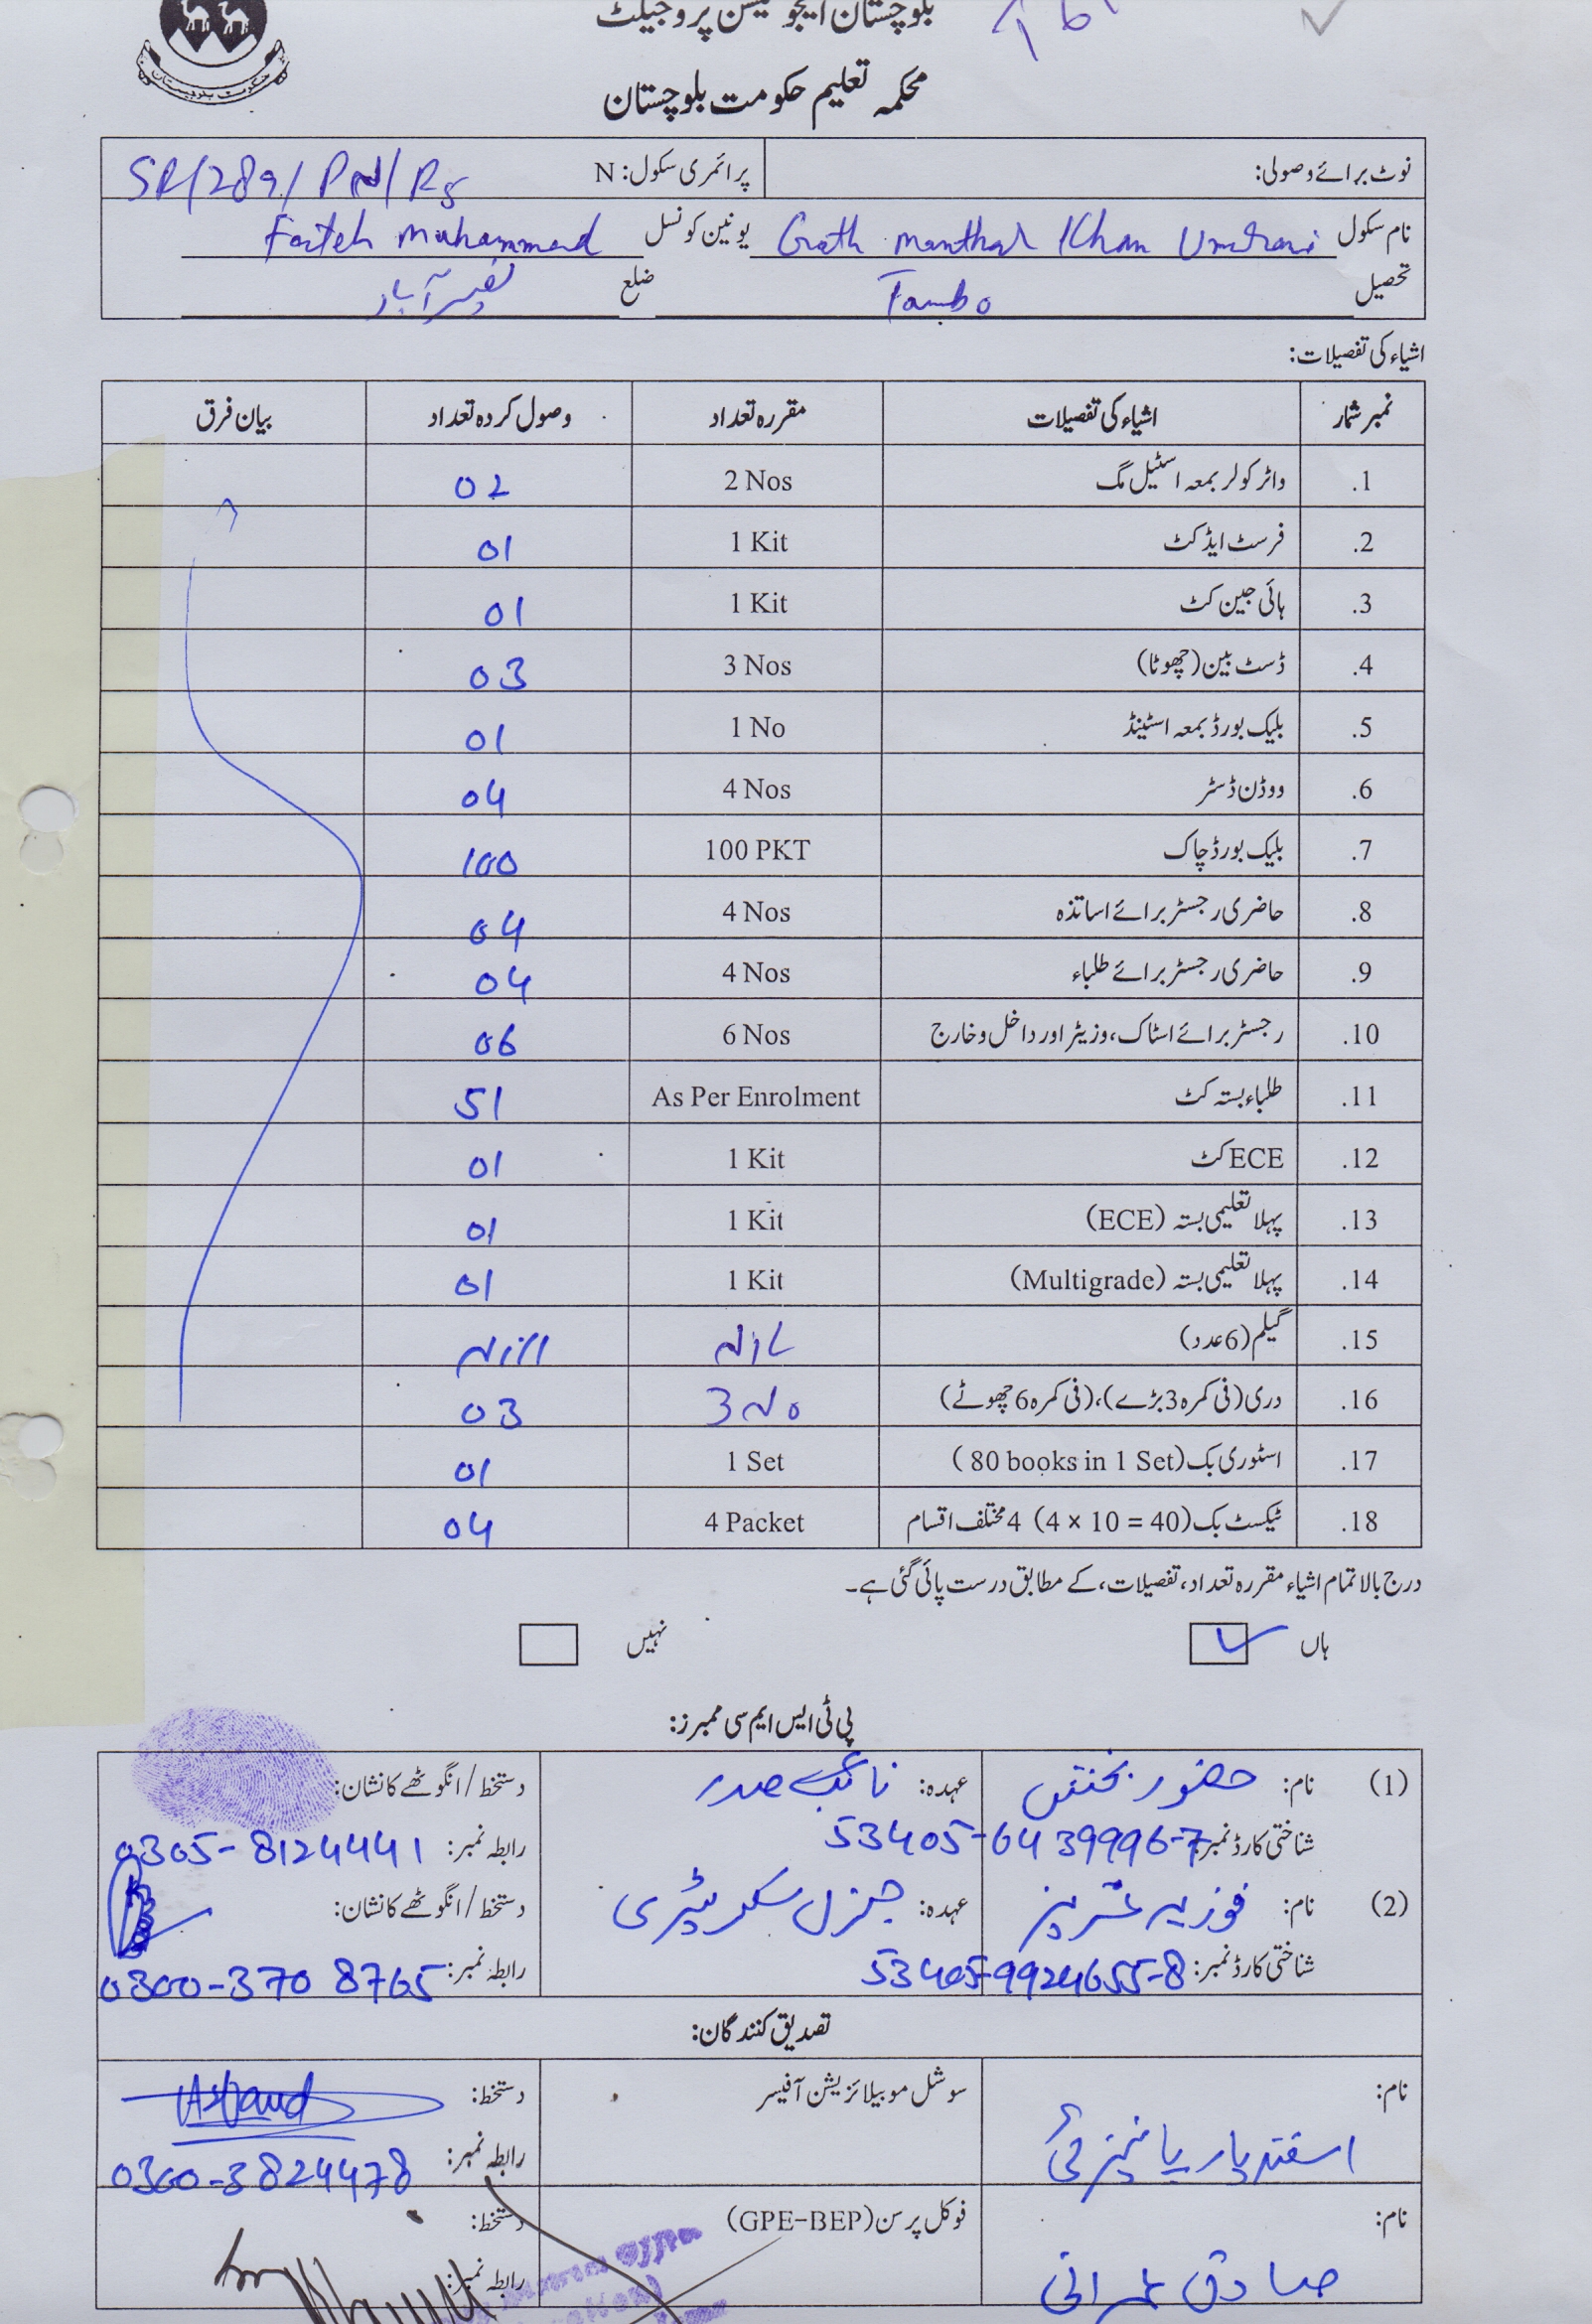 بلوچستان ایجوکیشن پروجیکٹ
محکمہ تعلیم حکومت بلوچستان
نوٹ برائے وصولی: پرائمری سکول: N SR/289/PN/RS
نام سکول Goth Manthar Khan Umrani یونین کونسل Fateh Muhammad
تحصیل Tambo ضلع نصیر آباد
اشیاء کی تفصیلات:
نمبر شمار اشیاء کی تفصیلات مقررہ تعداد وصول کردہ تعداد بیان فرق
1. واٹر کولر بمعہ اسٹیل مگ 2 Nos 02
2. فرسٹ ایڈ کٹ 1 Kit 01
3. ہائی جین کٹ 1 Kit 01
4. ڈسٹ بین (چھوٹا) 3 Nos 03
5. بلیک بورڈ بمعہ اسٹینڈ 1 No 01
6. ووڈن ڈسٹر 4 Nos 04
7. بلیک بورڈ چاک 100 PKT 100
8. حاضری رجسٹر برائے اساتذہ 4 Nos 04
9. حاضری رجسٹر برائے طلباء 4 Nos 04
10. رجسٹر برائے اسٹاک، وزیٹر اور داخل و خارج 6 Nos 06
11. طلباء بستہ کٹ As Per Enrolment 51
12. ECE کٹ 1 Kit 01
13. پہلا تعلیمی بستہ (ECE) 1 Kit 01
14. پہلا تعلیمی بستہ (Multigrade) 1 Kit 01
15. گیلم (6 عدد) NIL Nill
16. دری (فی کمرہ 3 بڑے)، (فی کمرہ 6 چھوٹے) 3 No 03
17. اسٹوری بک (80 books in 1 Set) 1 Set 01
18. ٹیکسٹ بک (4 × 10 = 40) 4 مختلف اقسام 4 Packet 04
درج بالا تمام اشیاء مقررہ تعداد، تفصیلات، کے مطابق درست پائی گئی ہے۔
ہاں نہیں
پی ٹی ایس ایم سی ممبرز:
(1) نام: حضور بخش عہدہ: نائب صدر دستخط / انگوٹھے کا نشان:
شناختی کارڈ نمبر: 53405-6439996-7 رابطہ نمبر: 0305-8124441
(2) نام: فوزیہ عہدہ: جنرل سکریٹری دستخط / انگوٹھے کا نشان:
شناختی کارڈ نمبر: 53405-9924655-8 رابطہ نمبر: 0300-370 8765
تصدیق کنندگان:
نام: اسفندیار سوشل موبیلائزیشن آفیسر دستخط:
رابطہ نمبر: 0300-3824478
نام: صادق عمرانی فوکل پرسن (GPE-BEP) دستخط:
رابطہ نمبر: